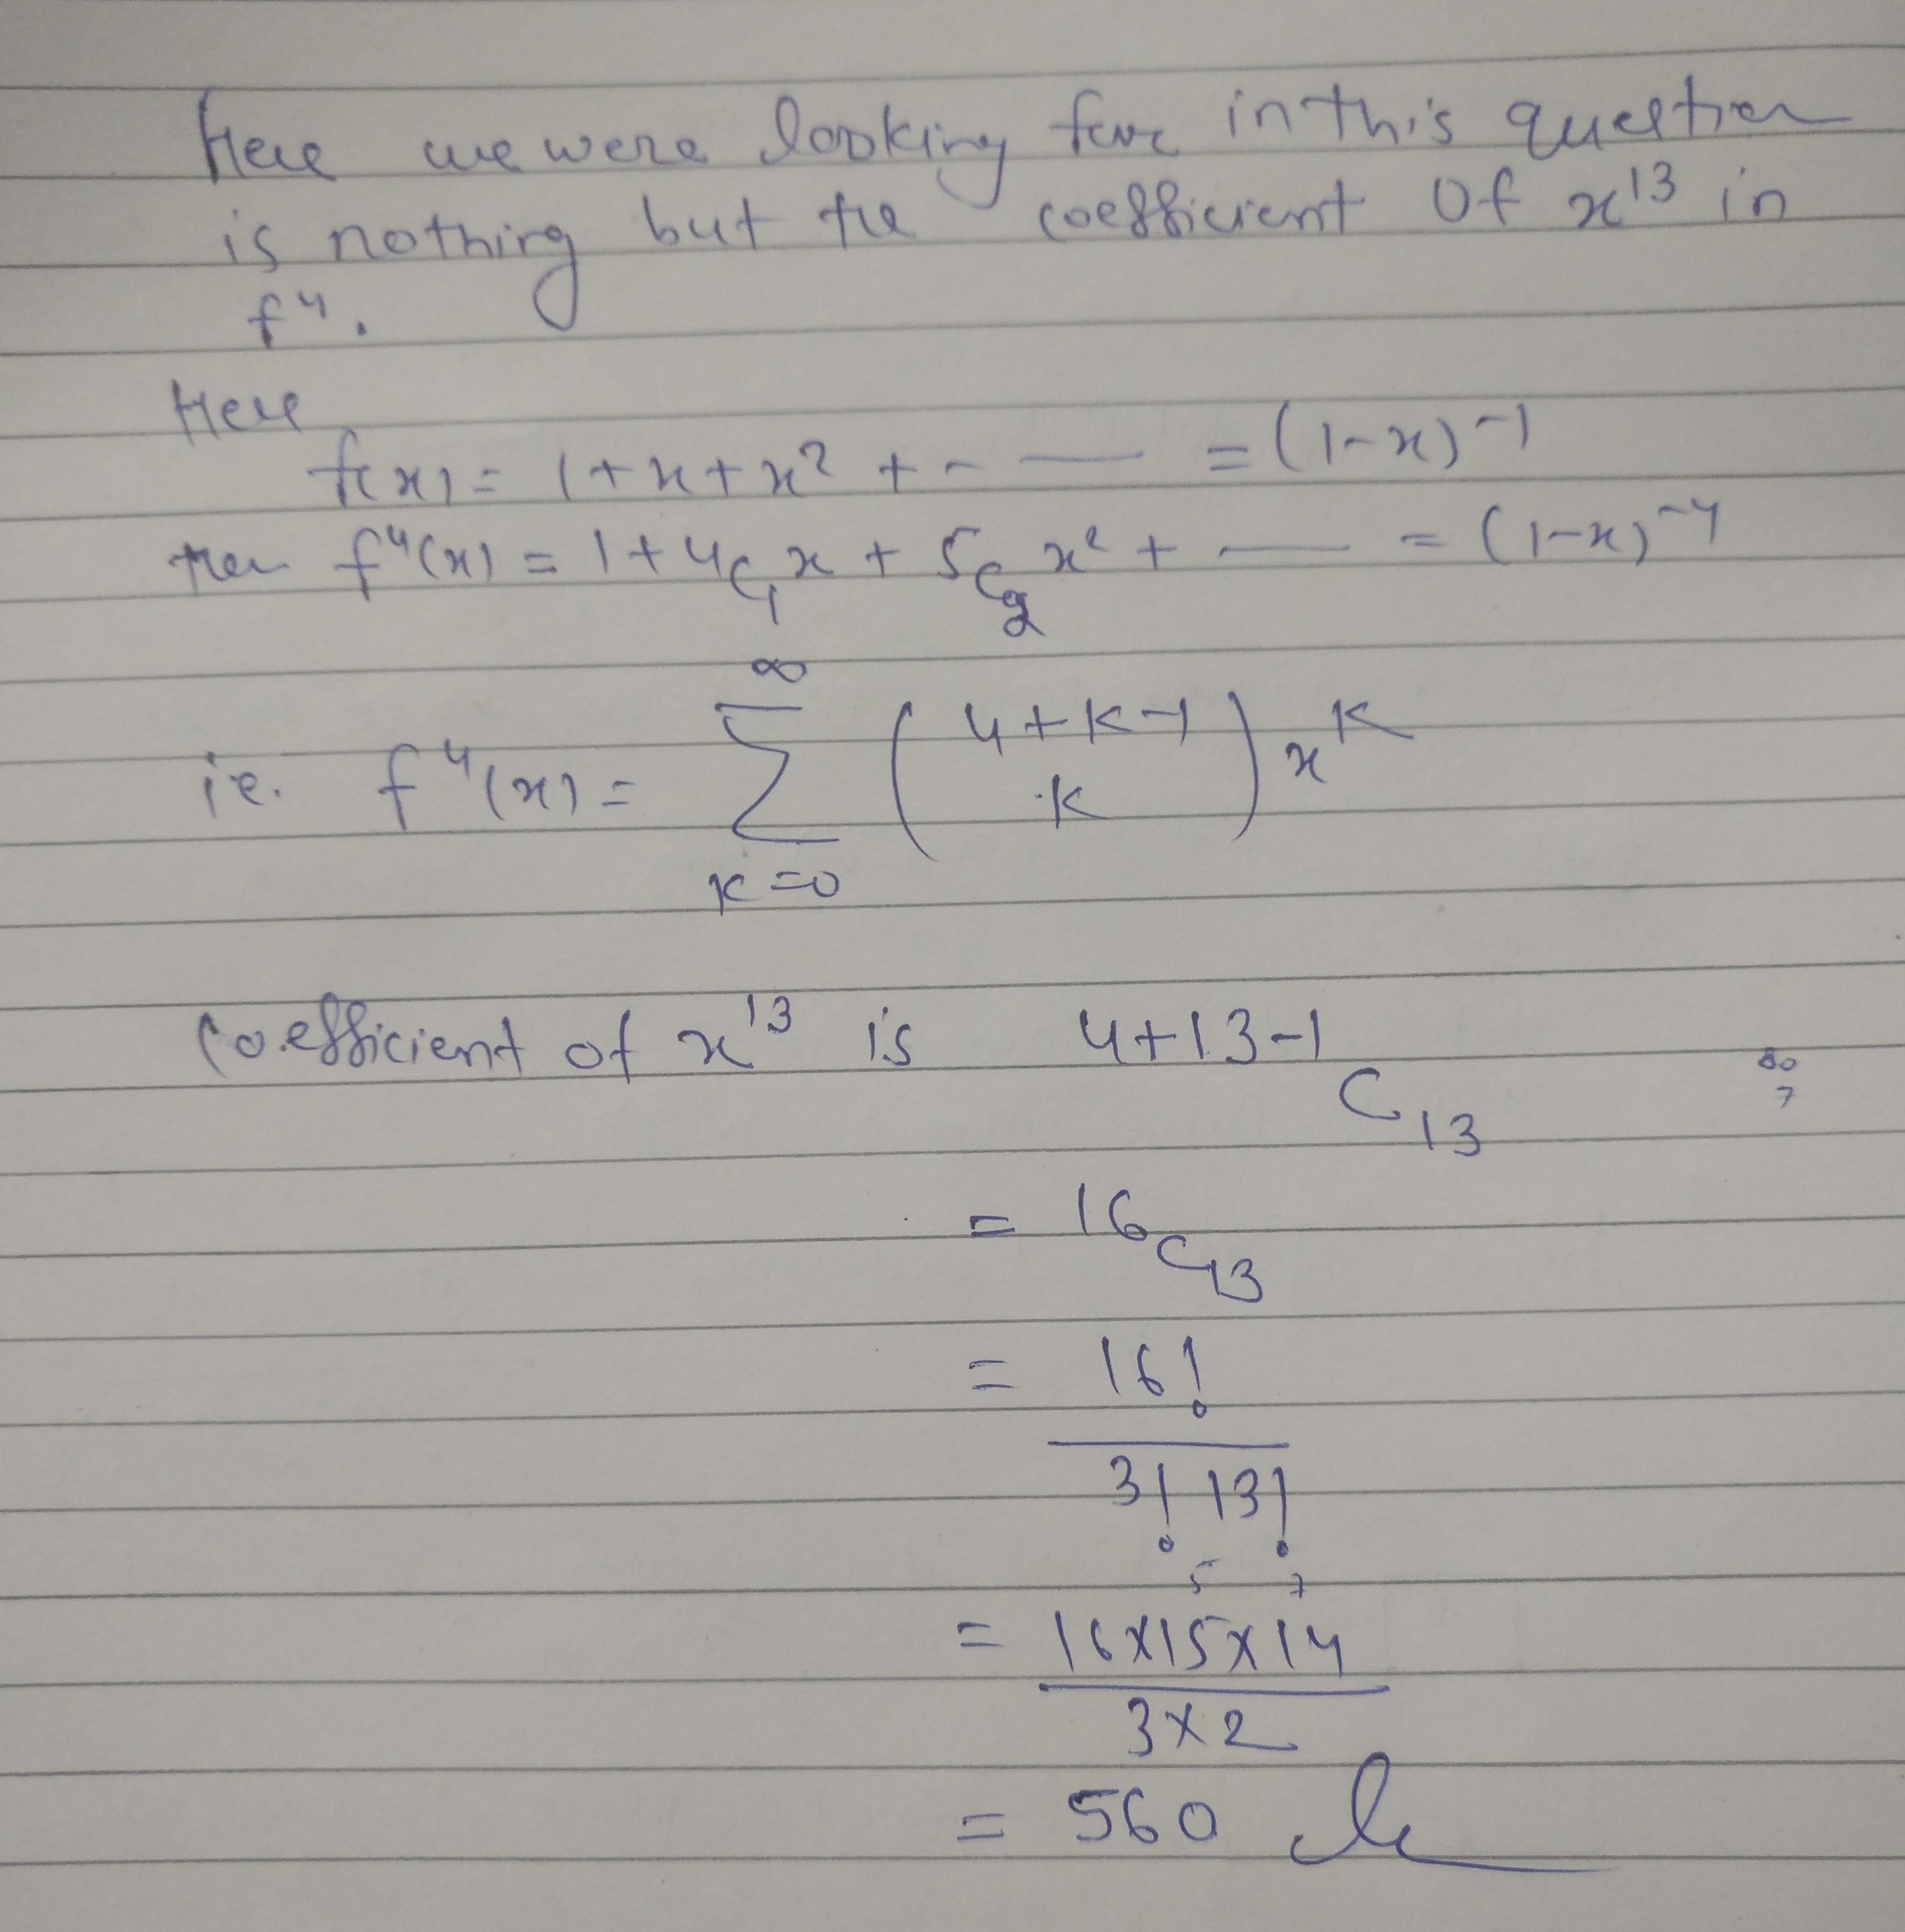 Here we were looking for in this question
is nothing but the coefficient of x^13 in
f^4.
Here
f(x) = 1+x+x^2 + - — = (1-x)^-1
then f^4(x) = 1+4C1 x + 5C2 x^2 + — = (1-x)^-4
∞
i.e. f^4(x) = Σ (4+K-1 K) x^K
K=0
Coefficient of x^13 is 4+13-1 C 13
80
7
= 16C13
= 16!
3! 13!
5 7
= 16x15x14
3x2
= 560